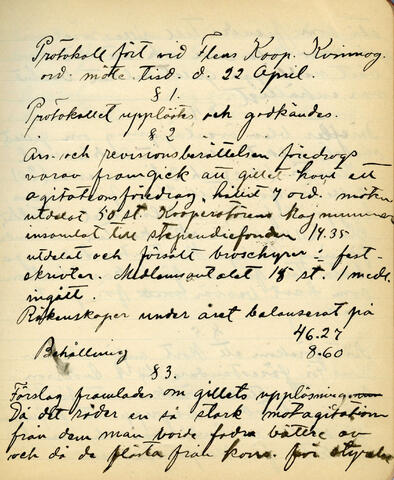 Protokoll fört vid Flens Koop. Kvinnog.
ord. möte tisd. d. 22 April.
§ 1.
Protokollet upplästes och godkändes.
§ 2
Års- och revisionsberättelsen föredrogs
varav framgick att gillet havt ett
agitationsföredrag, hållit 7 ord. möten
utdelat 50 st. Kooperatörens
insamlat till stipendiefonden 14.35
utdelat och försålt broschyrer fest-
skrivter. Medlemsantalet 15 st. 1 medl.
ingått.
Räkenskaper under året balanserat på
46.27
Behållning 8.60
§ 3.
Förslag framlades om gillets upplösning
Då det råder en så stark motagitation
från dem man borde fodra bättre av
och då de flesta från kons. för